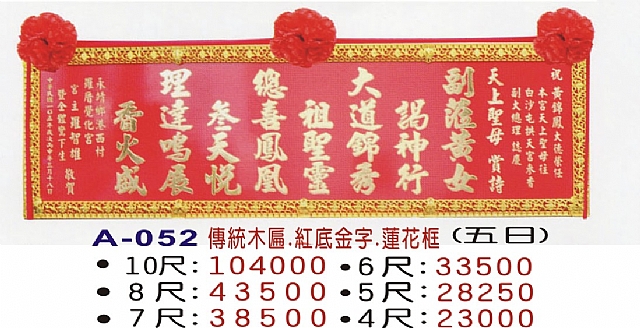 祝 黃錦鳳大德榮任
本宮天上聖母往
白沙屯拱天宮永香
副大總理 誌慶
天上聖母 賞持
副蒞黃女
謁神行
大道錦秀
祖聖靈
總喜鳳凰
叅天悅
理達鳴展
香火盛
永靖鄉港西村
羅厝覺化宮
宮主羅智雄
暨全體鸞下生 敬賀
A-052 傳統木匾.紅底金字.蓮花框 (五日)
• 10尺:104000 • 6尺:33500
• 8尺:43500 • 5尺:28250
• 7尺:38500 • 4尺:23000